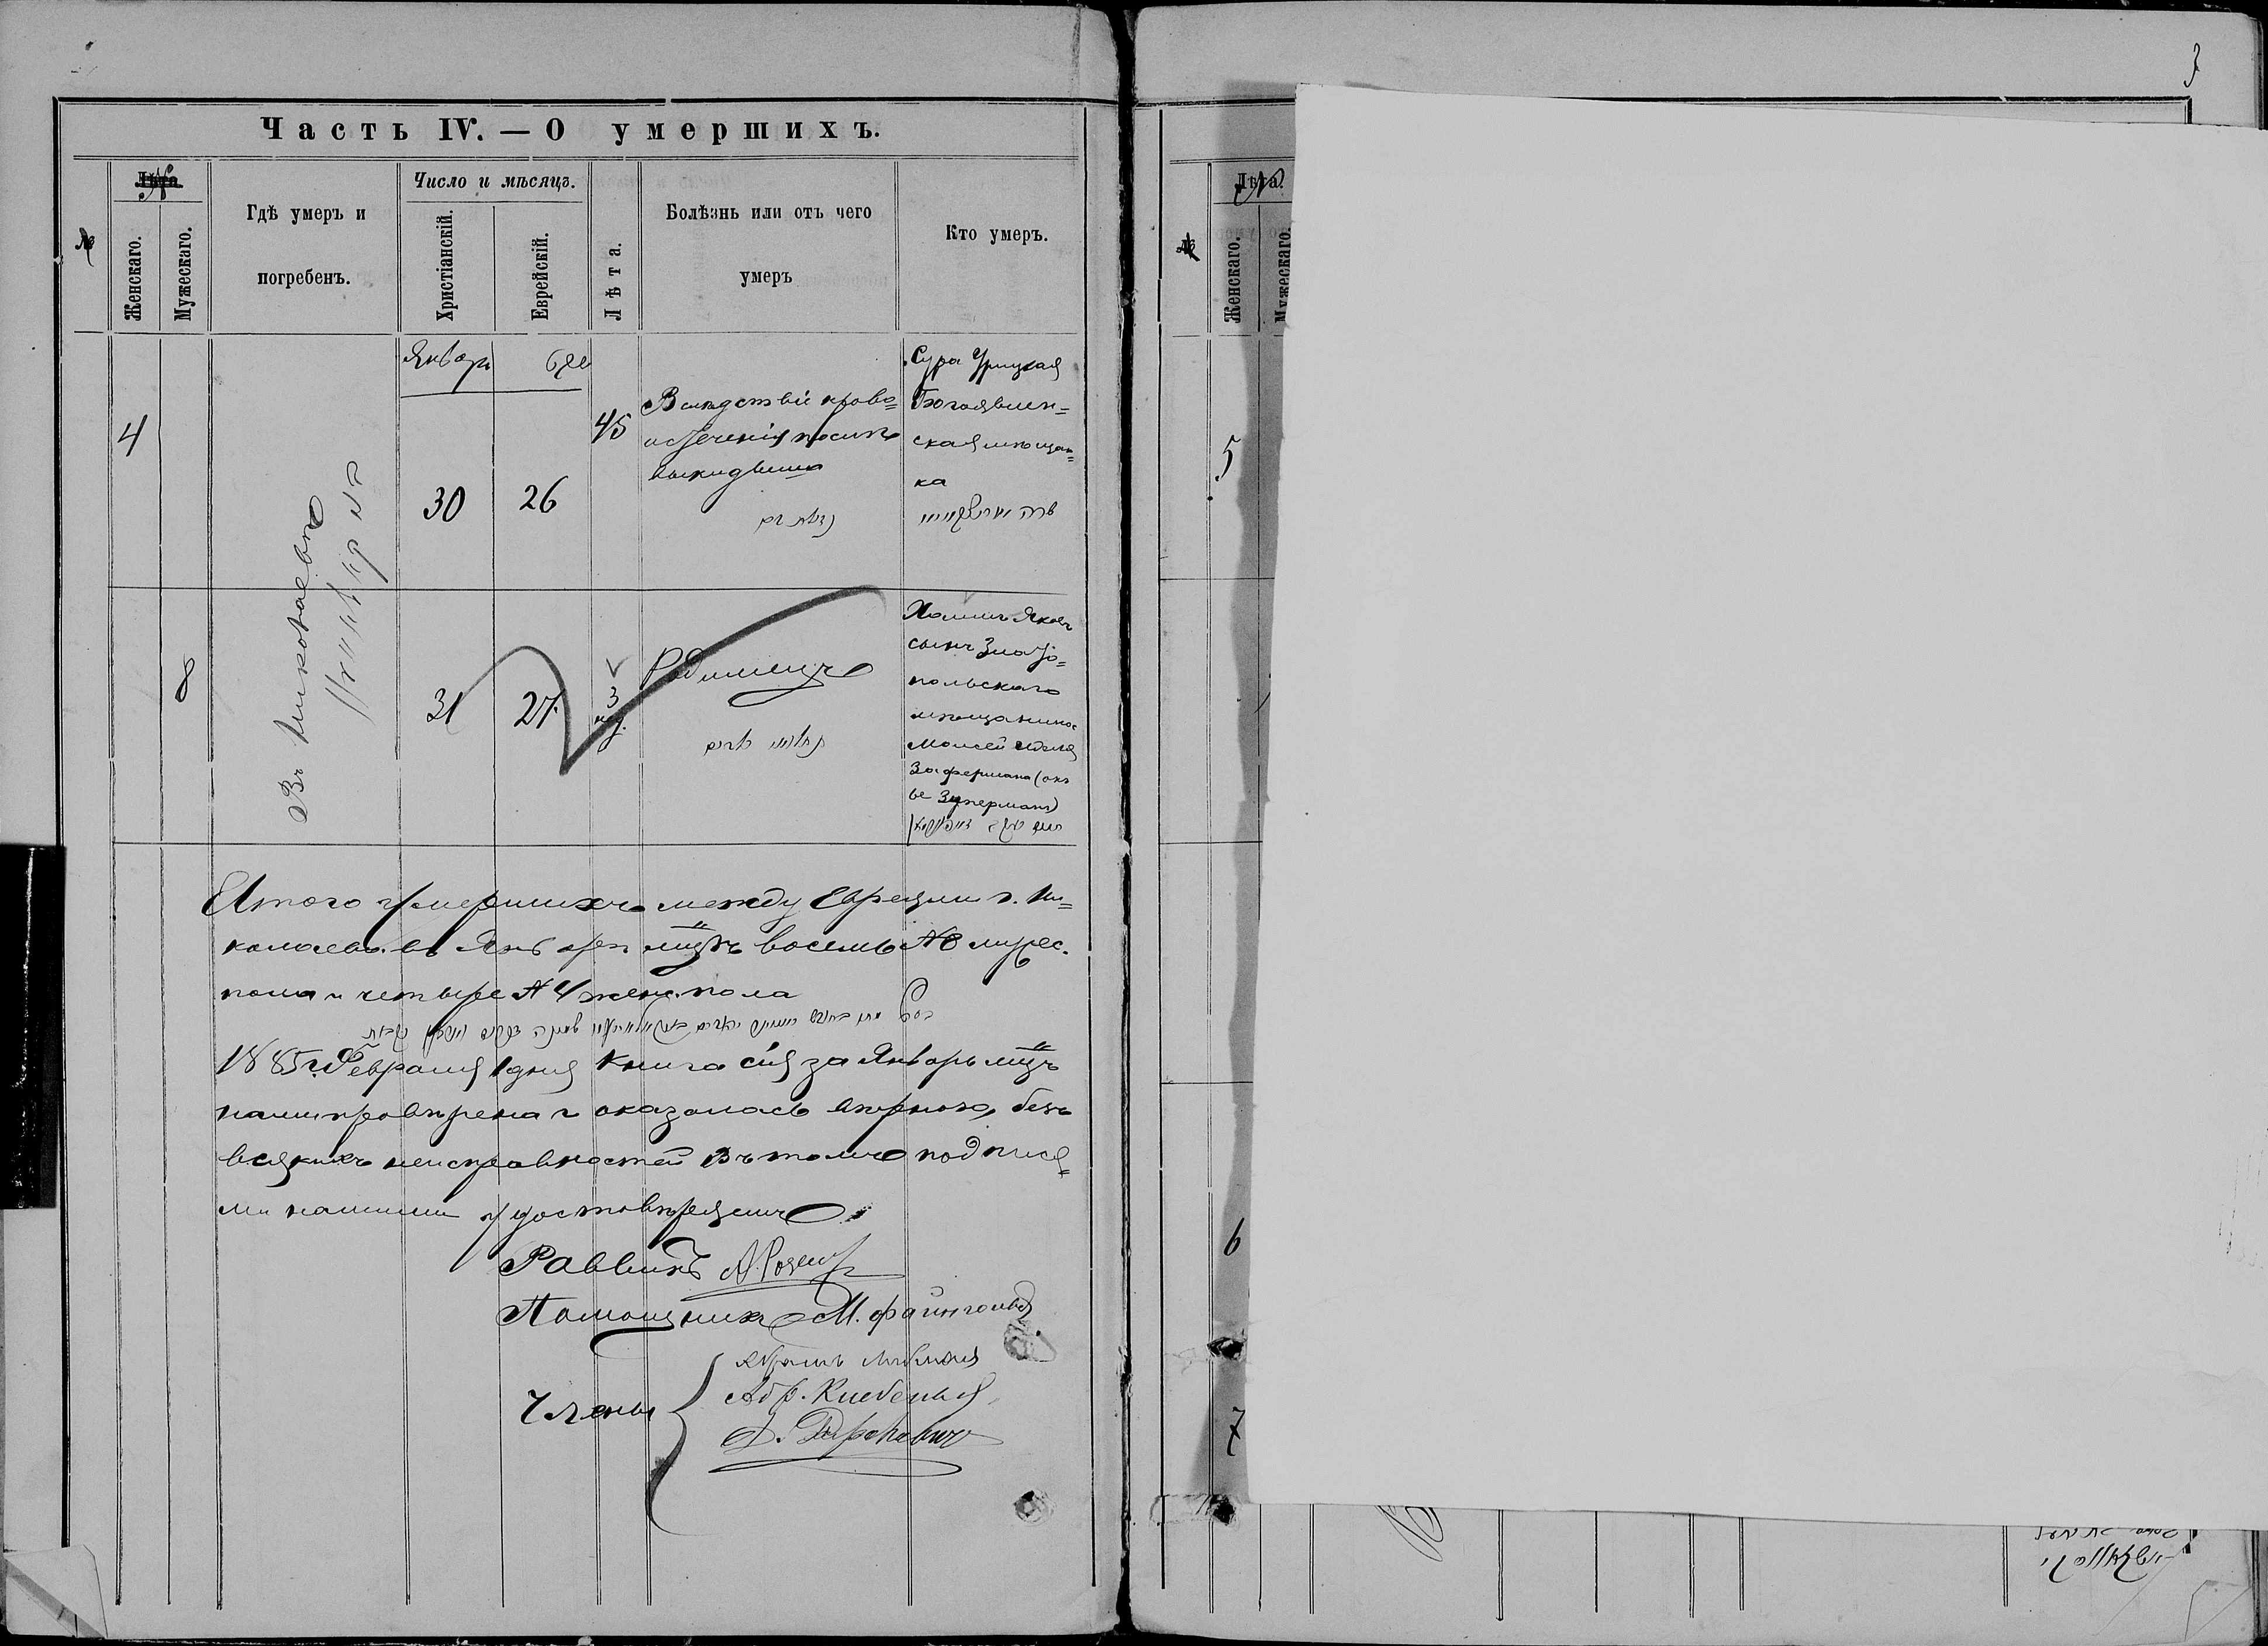 3
Часть IV. — О умершихъ.
№
Лѣта
№
Женскаго.
Мужескаго.
Гдѣ умеръ и
погребенъ.
Число и мѣсяцъ.
Христіанскій.
Еврейскій.
Лѣта.
Болѣзнь или отъ чего
умеръ
Кто умеръ.
4
Въ Николаевѣ
Январь
30
26
45
Вслѣдствіе крово=
истеченія послѣ
выкидыша
Сура Урицкая
Богоявлен=
ская мѣщан=
ка
8
31
27
3
нед.
Родимецъ
Хаимъ Яковъ
сынъ Злато=
польскаго
мѣщанина
Мойсей
Зафермана (онъ
же Зуперманъ)
Итого умершихъ между Евреями г. Ни=
колаева въ Январѣ мцѣ восемь №8 мужес.
пола и четыре №4 женс. пола
1885 г. Февраля 1 дня книга сія за Январь мцъ
нами провѣрена и оказалась вѣрною, безъ
всякихъ неисправностей въ томъ подпися=
ми нашими удостовѣряемъ
Раввинъ
Помощникъ М. Файнгольд
Члены
Абр.
Д.
Лѣта.
№
Женскаго.
Мужескаго.
5
6
7